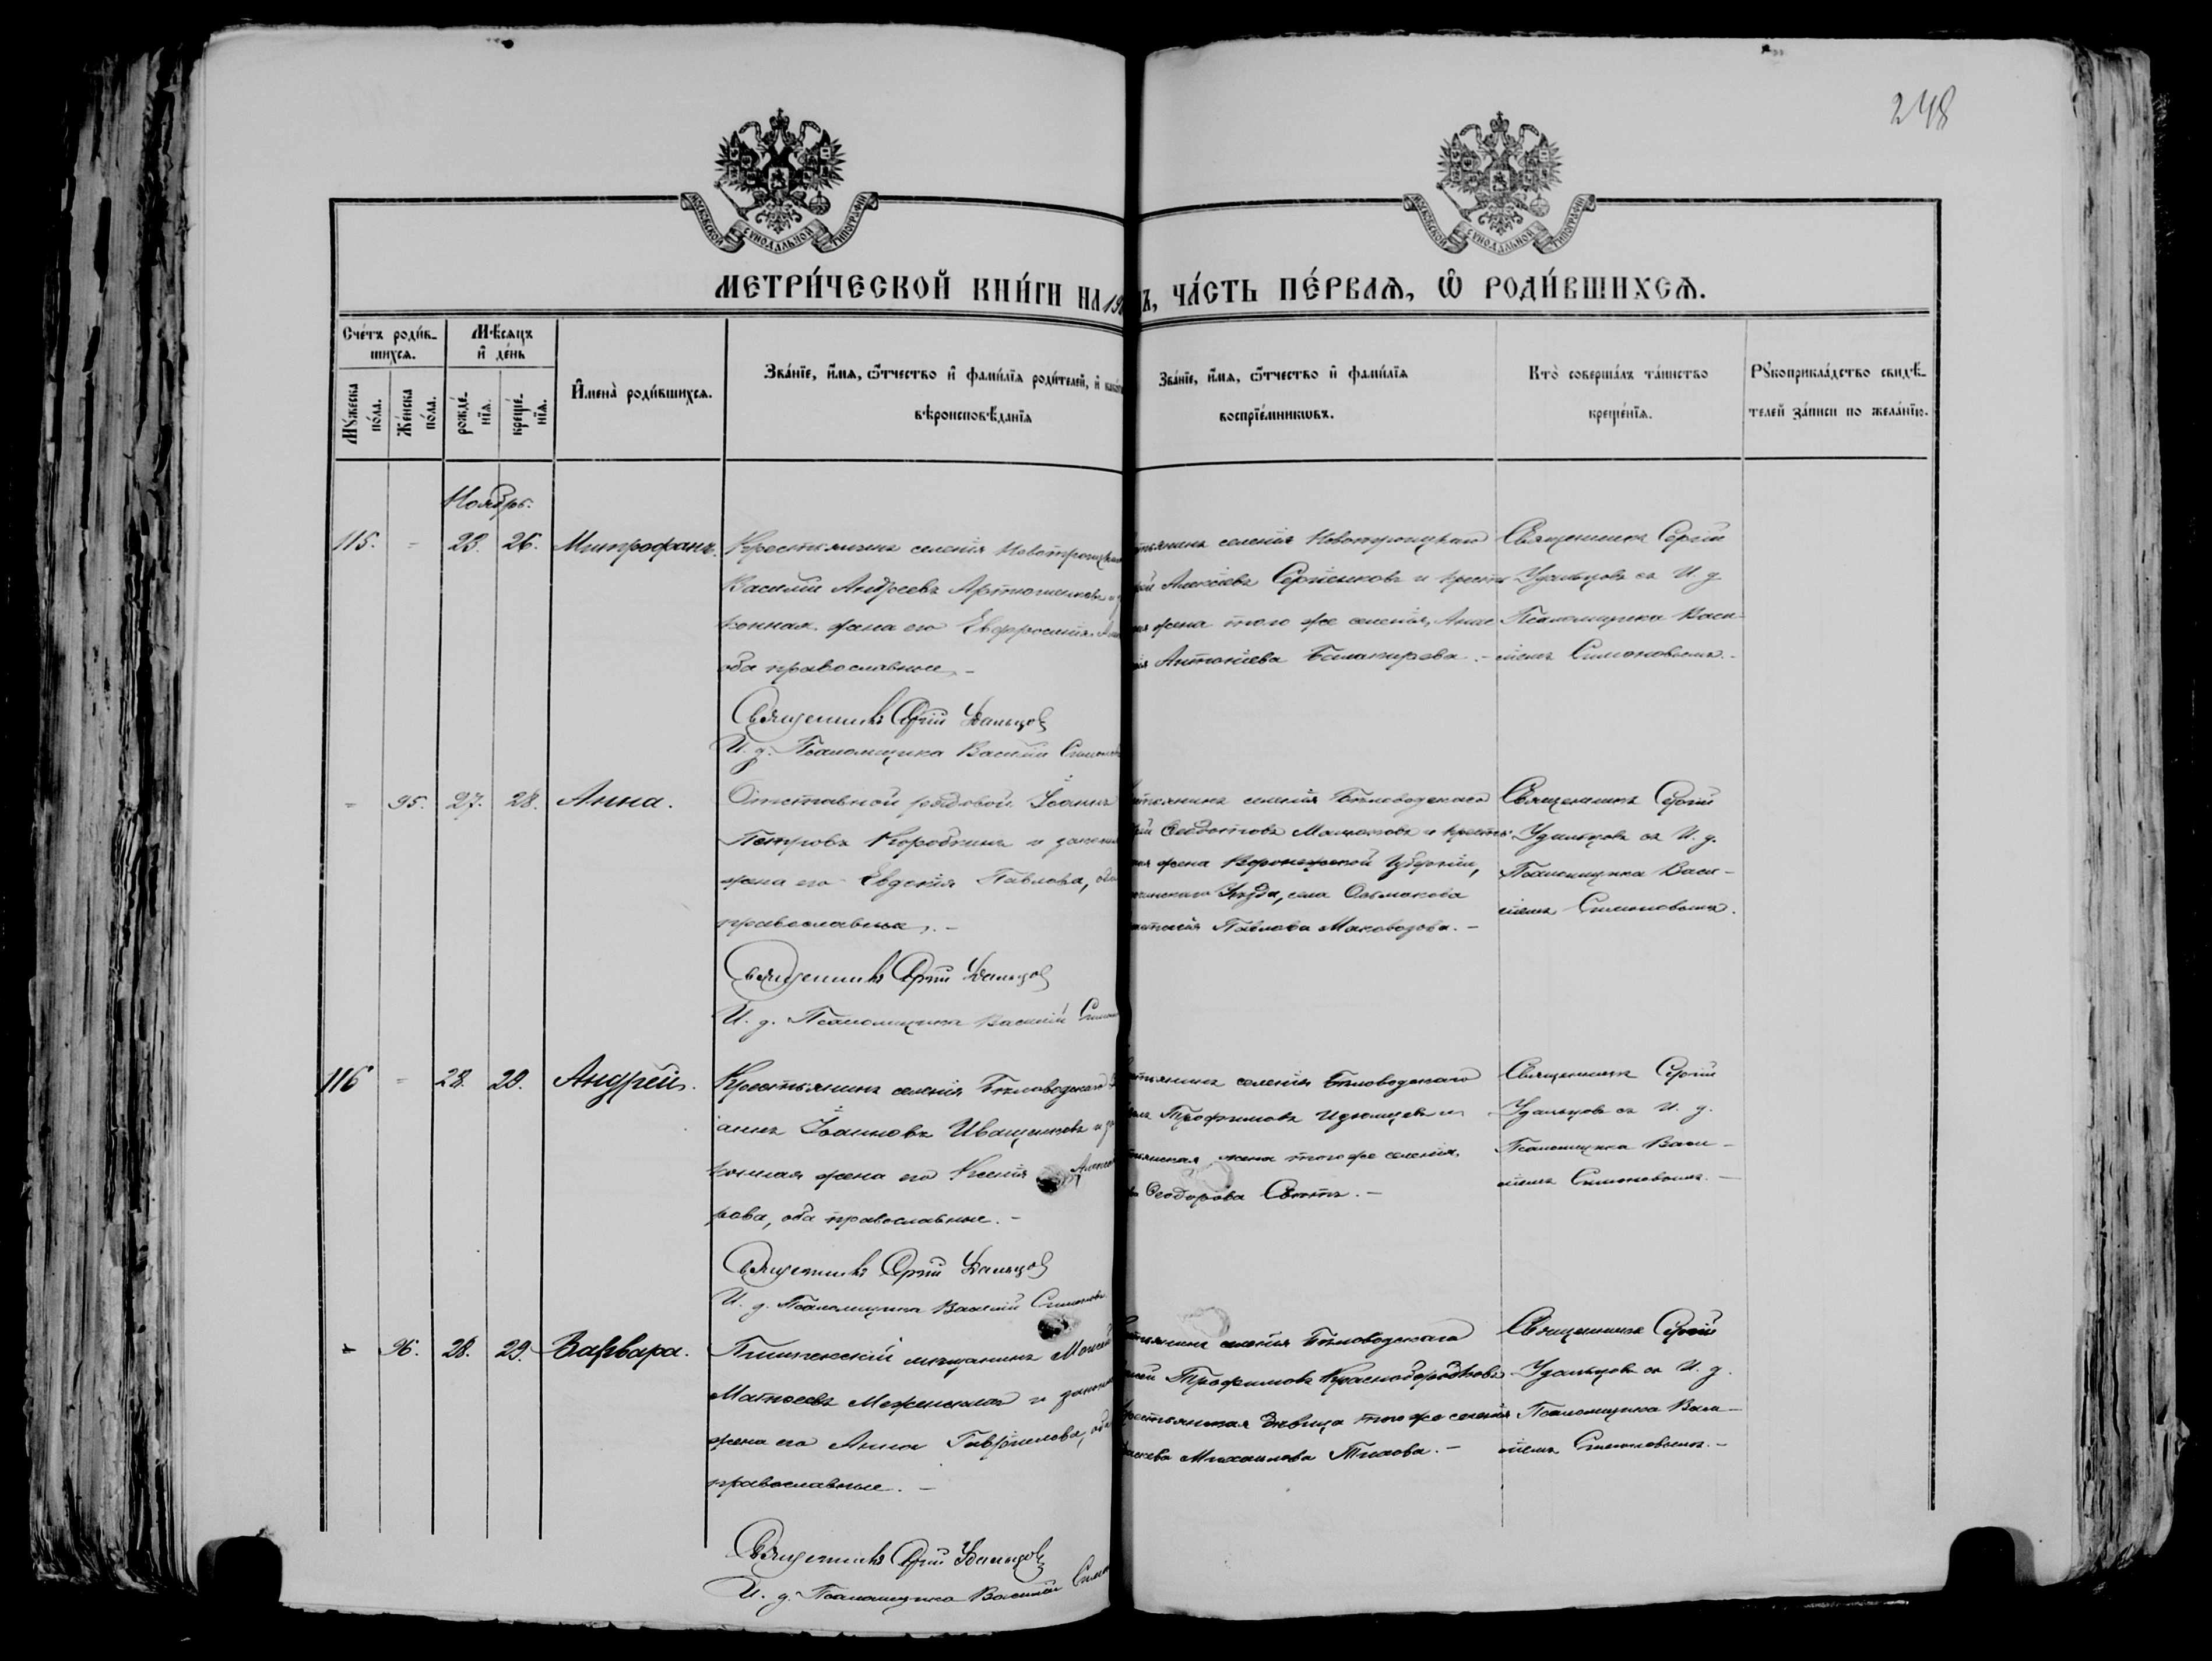 248
МОСКОВСКОЙ СѴНОДАЛЬНОЙ ТИПОГРАФІИ
МОСКОВСКОЙ СѴНОДАЛЬНОЙ ТИПОГРАФІИ
МЕТРИ́ЧЕСКОЙ КНИ́ГИ НА 19
Ъ, ЧА́СТЬ ПЕ́РВАѦ, Ѡ РОДИ́ВШИХСѦ.
Сче́тъ роди́в-
шихсѧ.
Мꙋжеска
по́ла.
Же́нска
по́ла.
Мѣ́сѧцъ
и҆ де́нь
рожде́-
нїѧ.
креще́-
нїѧ.
И҆мена̀ роди́вшихсѧ.
Зва́нїе, и҆́мѧ, ѻ҆́тчество и҆ фами́лїѧ роди́телей, и҆
вѣроисповѣ́данїѧ
Зва́нїе, и҆́мѧ, ѻ҆́тчество и҆ фами́лїѧ
воспрїе́мникѡвъ.
Кто̀ соверша́лъ та́инство
креще́нїѧ.
Рꙋкоприкла́дство свидѣ́-
телей за́писи по жела́нїю.
Ноябрь.
115. - 23. 26. Митрофанъ.
Крестьянинъ селенія Новотроицкаго
Василій Андреевъ Артюшенковъ и
конная жена его Евфросинія
оба православные. -
Священникъ Сергій Удальцовъ
И. д. Псаломщика Василій
тьянинъ селенія Новотроицкаго
Алексѣевъ Сергіенковъ и крестя
жена того же селенія, Анас
Антоніева Балакирева. -
Священникъ Сергій
Удальцовъ съ И. д.
Псаломщика Васи-
ліемъ Симоновымъ. -
- 95. 27. 28. Анна.
Отставной рядовой Іоаннъ
Петровъ Коробкинъ и законная
жена его Евдокія Павлова, оба
православные. -
Священникъ Сергій Удальцовъ
И. д. Псаломщика Василій
стьянинъ селенія Бѣловодскаго
Ѳедотовъ и крестья
жена Воронежской Губерніи,
Уѣзда, села
Павлова Маховодова. -
Священникъ Сергій
Удальцовъ съ И. д.
Псаломщика Васи-
ліемъ Симоновымъ.
116 - 28. 29. Андрей.
Крестьянинъ селенія Бѣловодскаго
аннъ Іоанновъ Иващенковъ и за
конная жена его Ксенія
рова, оба православные. -
Священникъ Сергій Удальцовъ
И. д. Псаломщика Василій Симоновъ
стьянинъ селенія Бѣловодскаго
Трофимовъ Изюмцевъ и
тьянская жена того же селенія,
Ѳеодорова Свѣтъ. -
Священникъ Сергій
Удальцовъ съ И. д.
Псаломщика Васи-
ліемъ Симоновымъ. -
- 96. 28. 29. Варвара.
Пишпекскій мѣщанинъ Моисей
Матѳеевъ и законная
жена его Анна Гавріилова, оба
православные. -
Священникъ Сергій Удальцовъ
И. д. Псаломщика Василій
стьянинъ селенія Бѣловодскаго
Трофимовъ Краснобородковъ
крестьянская дѣвица того же селенія
Михаилова Титова. -
Священникъ Сергій
Удальцовъ съ И. д.
Псаломщика Васи-
ліемъ Симоновымъ. -